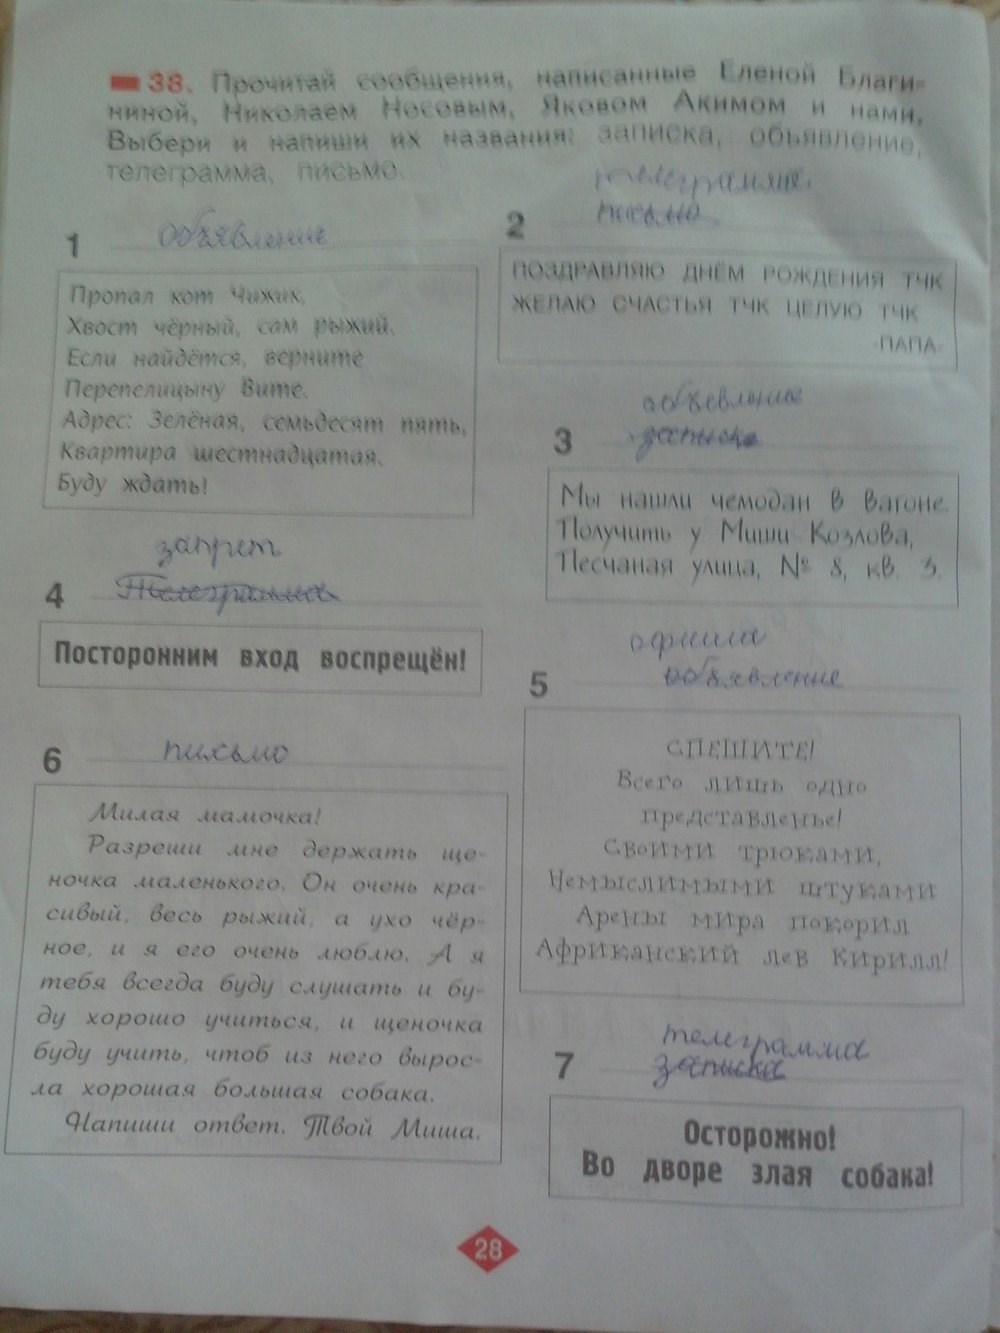 38. Прочитай сообщения, написанные Еленой Благи-
ниной, Николаем Носовым, Яковом Акимом и нами.
Выбери и напиши их названия: записка, объявление,
телеграмма, письмо.
1 объявление
Пропал кот Чижик.
Хвост чёрный, сам рыжий.
Если найдётся, верните
Перепелицыну Вите.
Адрес: Зелёная, семьдесят пять,
Квартира шестнадцатая.
Буду ждать!
телеграмма
2 письмо
ПОЗДРАВЛЯЮ ДНЁМ РОЖДЕНИЯ ТЧК
ЖЕЛАЮ СЧАСТЬЯ ТЧК ЦЕЛУЮ ТЧК
-ПАПА-
объевление
3 записка
Мы нашли чемодан в вагоне.
Получить у Миши Козлова,
Песчаная улица, № 8, кв. 3.
запрет
4 Телеграмма
Посторонним вход воспрещён!
афиша
5 объявление
СПЕШИТЕ!
Всего лишь одно
представленье!
Своими трюками,
Немыслимыми штуками
Арены мира покорил
Африканский лев Кирилл!
6 письмо
Милая мамочка!
Разреши мне держать ще-
ночка маленького. Он очень кра-
сивый, весь рыжий, а ухо чёр-
ное, и я его очень люблю. А я
тебя всегда буду слушать и бу-
ду хорошо учиться, и щеночка
буду учить, чтоб из него вырос-
ла хорошая большая собака.
Напиши ответ. Твой Миша.
телеграмма
7 записка
Осторожно!
Во дворе злая собака!
28